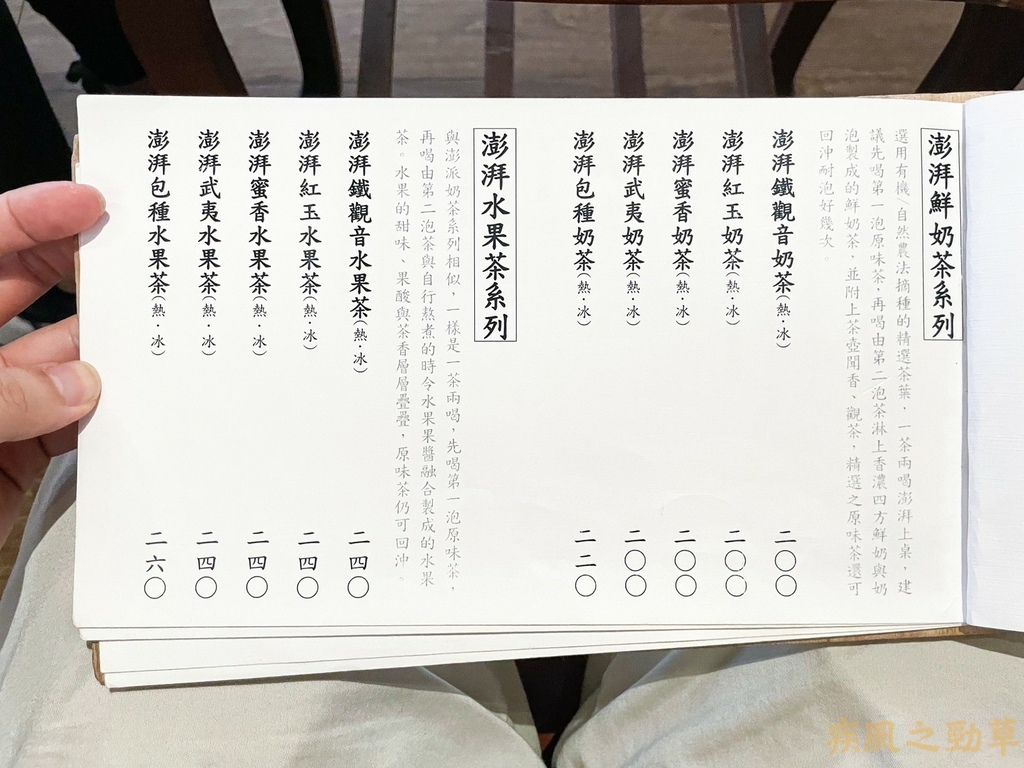 澎湃鮮奶茶系列
選用有機/自然農法摘種的精選茶葉，一茶兩喝澎湃上桌，建
議先喝第一泡原味茶，再喝由第二泡茶淋上香濃四方鮮奶與奶
泡製成的鮮奶茶，並附上茶壺聞香、觀茶，精選之原味茶還可
回沖耐泡好幾次。
澎湃鐵觀音奶茶(熱·冰) 二〇〇
澎湃紅玉奶茶(熱·冰) 二〇〇
澎湃蜜香奶茶(熱·冰) 二〇〇
澎湃武夷奶茶(熱·冰) 二〇〇
澎湃包種奶茶(熱·冰) 二二〇
澎湃水果茶系列
與澎派奶茶系列相似，一樣是一茶兩喝，先喝第一泡原味茶，
再喝由第二泡茶與自行熬煮的時令水果果醬融合製成的水果
茶。水果的甜味、果酸與茶香層層疊疊，原味茶仍可回沖。
澎湃鐵觀音水果茶(熱·冰) 二四〇
澎湃紅玉水果茶(熱·冰) 二四〇
澎湃蜜香水果茶(熱·冰) 二四〇
澎湃武夷水果茶(熱·冰) 二四〇
澎湃包種水果茶(熱·冰) 二六〇
疾風之勁草